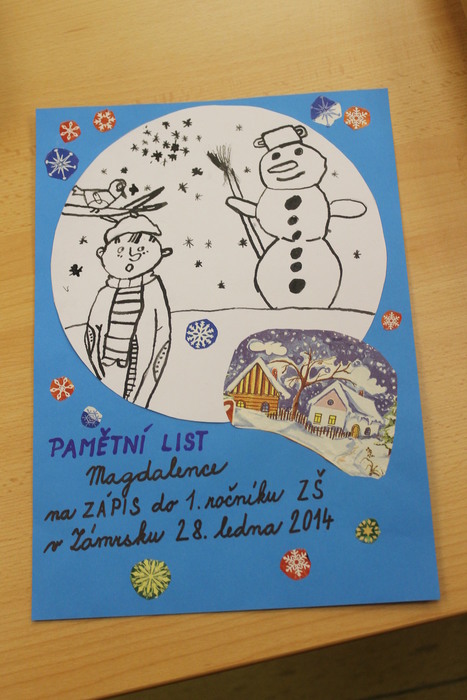 PAMĚTNÍ LIST
Magdalence
na ZÁPIS do 1. ročníku ZŠ
v Zámrsku 28. ledna 2014